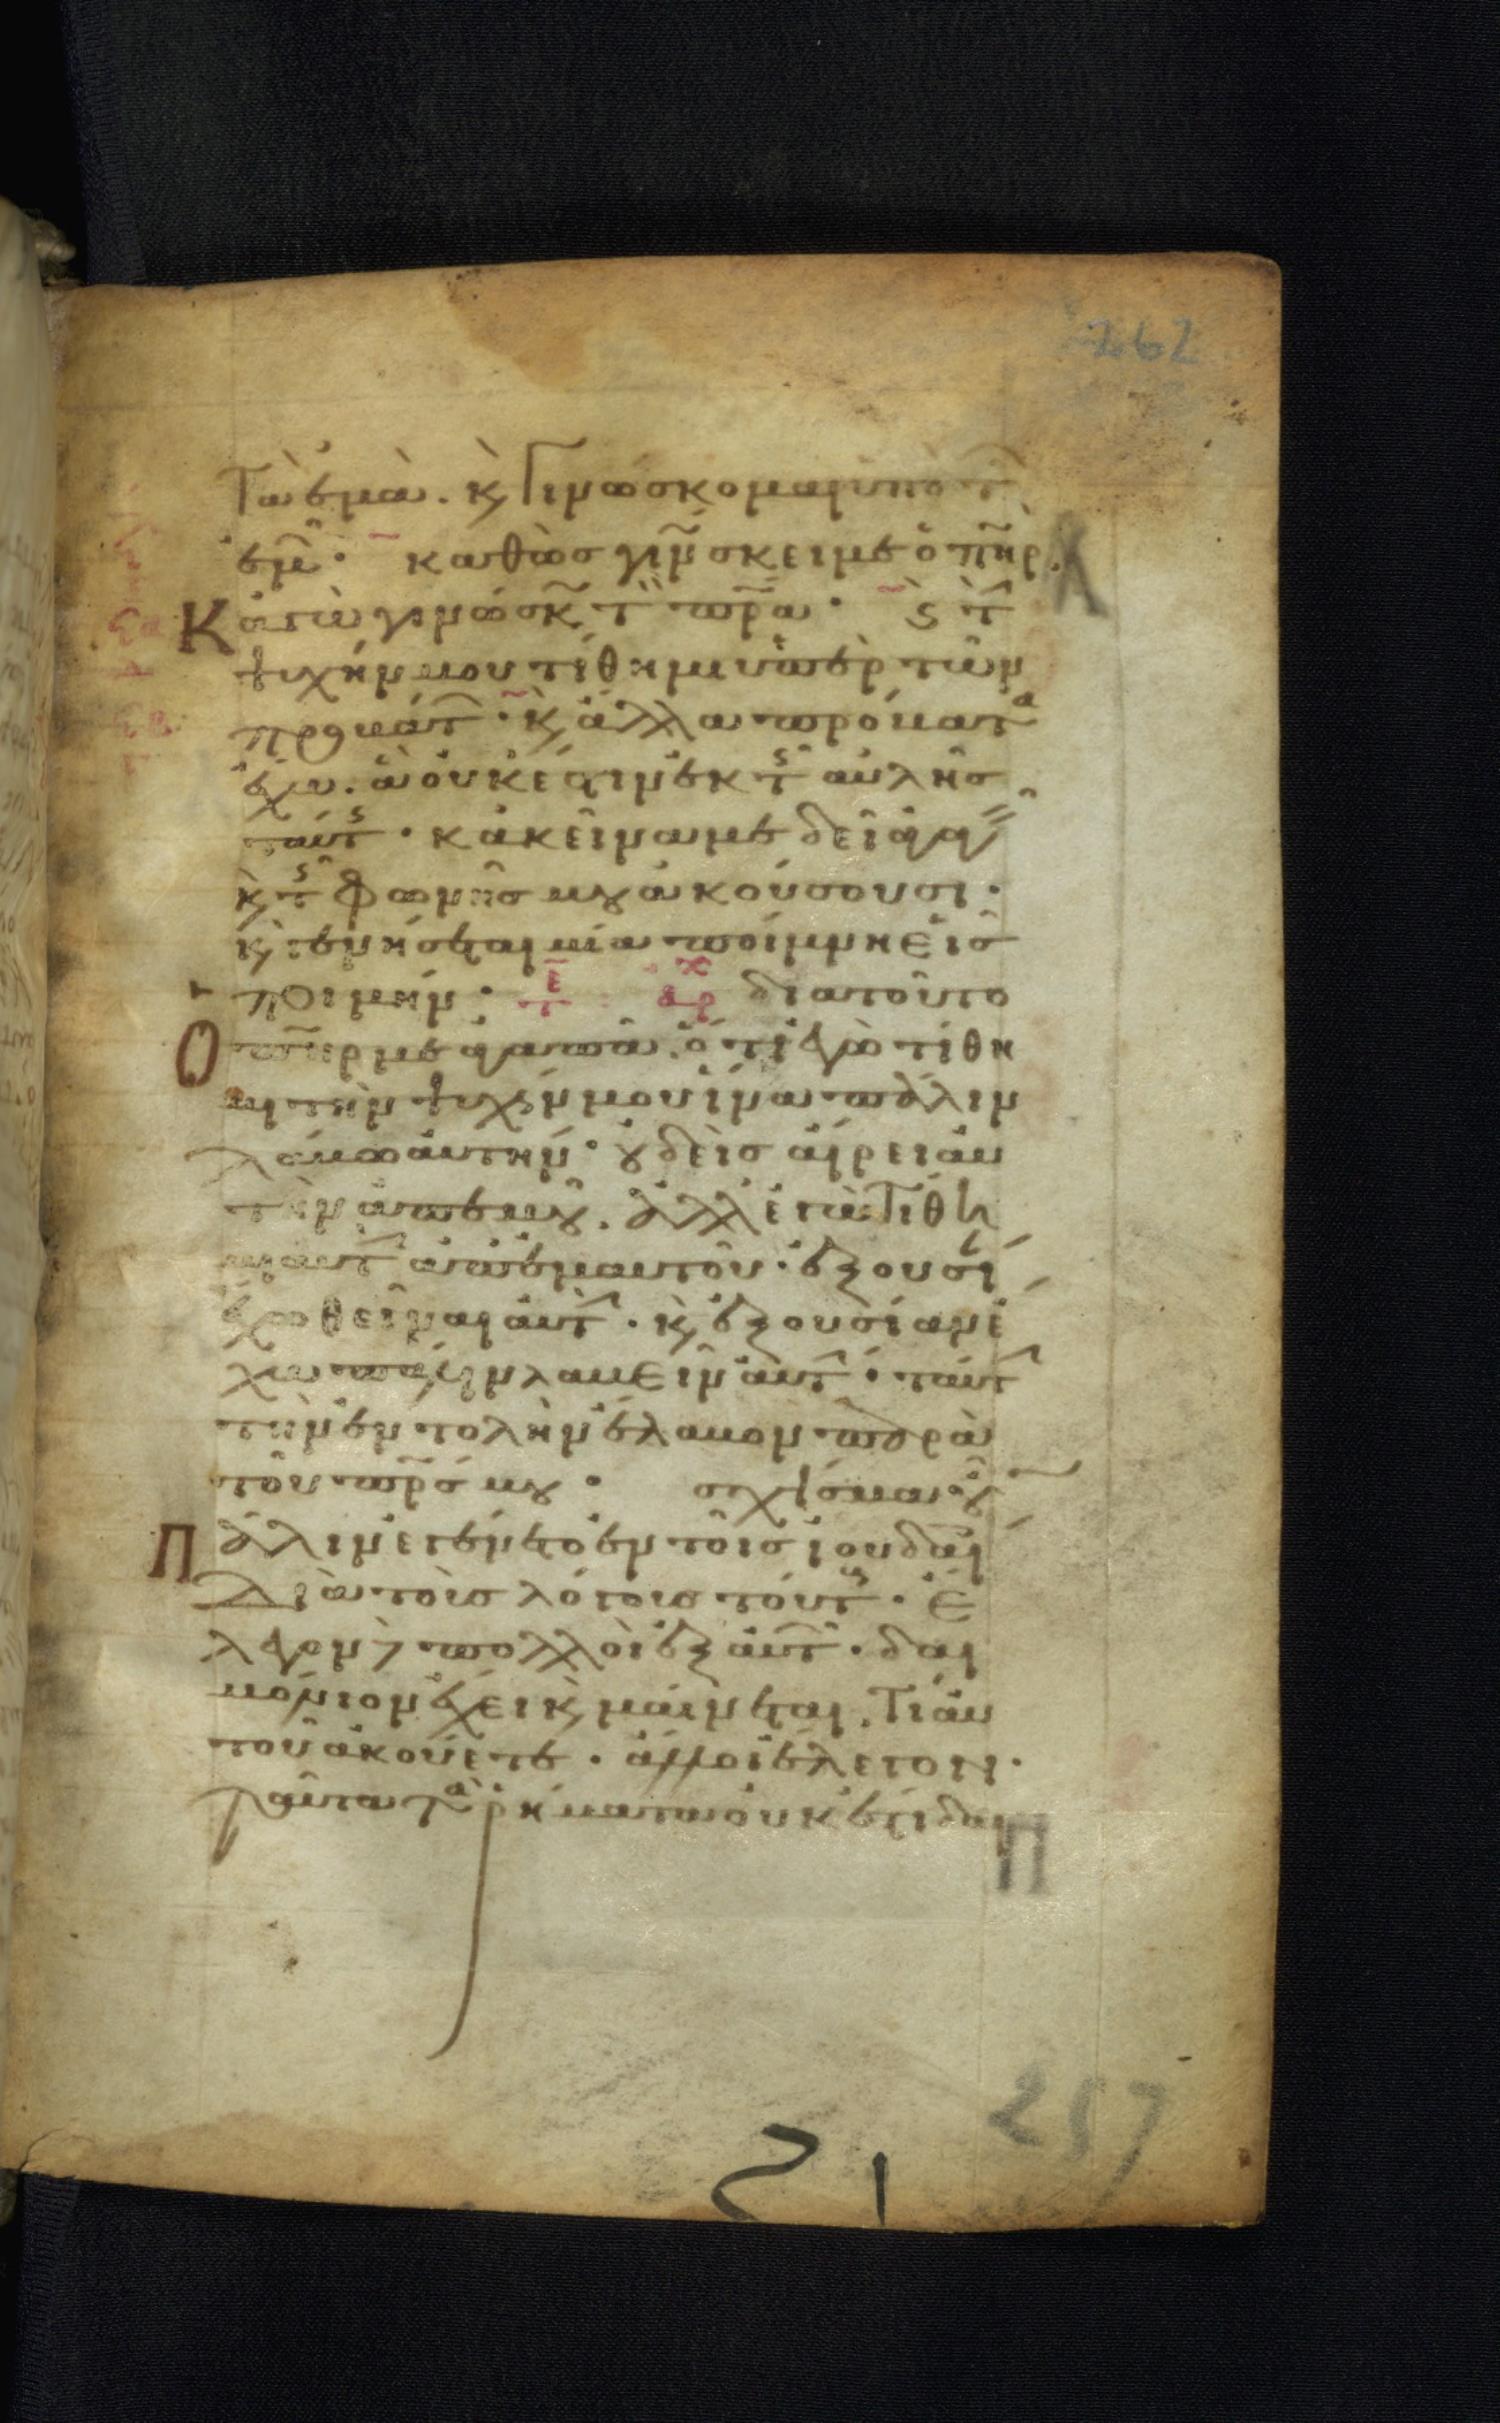 262
τὰ ἐμὰ. κ̀ γινώσκομαι ὑπὸ τ῀
ἐμ῀. καθὼς γιν῀σκει με ὁ πη῀ρ.
Κἀγὼ γινώσκ῀ τ῀ πρ῀α. κ̀ τ῀
ψυχήν μου τίθημι ὑπὲρ τῶν
προβάτ῀. κ̀ ἄλλα πρόβατα
ἔχω. ἃ οὐκ ἔστιν ἐκ τ῀ς αὐλῆς
ταύτς. κἀκεῖνα με δεῖ ἀγαγ῀
κ̀ τ῀ς φωνῆς μου ἀκούσουσι.
κ̀ γενήσεται μία ποίμνη εἷς
ποιμήν. τε αρχ διατοῦτο
Ὁ πη῀ρ με ἀγαπᾶ. ὅτι ἐγὼ τίθη
μι τὴν ψυχήν μου ἵνα πάλιν
λάβω αὐτήν. οὐδεὶς αἴρει αὐ
τὴν ἀπ ἐμοῦ. ἀλλ ἐγὼ τίθη
μι αὐτ῀ ἀπ ἐμαυτοῦ. ἐξουσί
ἔχω θεῖναι αὐτ῀. κ̀ ἐξουσίαν ἔ
χω πάλιν λαβεῖν αὐτ῀. ταύτ῀
τὴν ἐντολὴν ἔλαβον παρὰ
τοῦ πρ῀ς μου. σχίσμα οὖ῀
Πάλιν ἐγένετο ἐν τοῖς ἰουδαί
διὰ τοὺς λόγους τούτς. ἔ
λεγον πολλοὶ ἐξ αὐτ῀. δαι
μόνιον ἔχει κ̀ μαίνεται. τί αὐ
τοῦ ἀκούετε. ἄλλοι ἔλεγον.
ταῦτα τὰ ῥήματα οὐκ ἔστι δαι
257
21